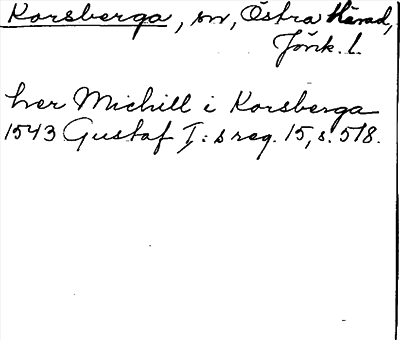 Korsberga, sn, Östra Härad,
Jönk. l.
her Michill i Korsberga
1543 Gustaf I:s reg. 15, s. 518.